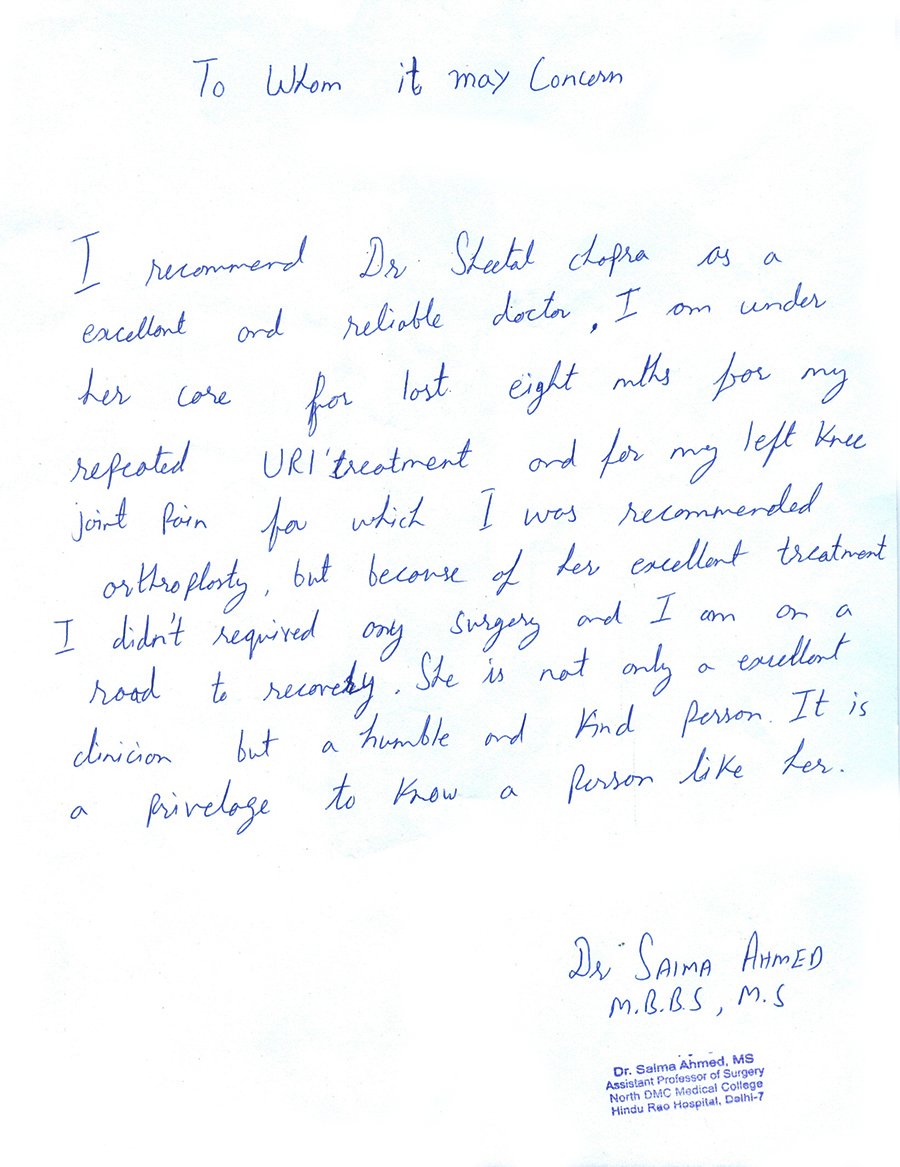 To Whom it may Concern
I recommend Dr Sheetal chopra as a
excellent and reliable doctor, I am under
her care for last eight mths for my
repeated URI treatment and for my left Knee
joint Pain for which I was recommended
orthroplasty, but because of her excellent treatment
I didn't required any surgery and I am on a
road to recovery. She is not only a excellent
clinician but a humble and Kind Person. It is
a Privelage to Know a Person like her.
Dr SAIMA AHMED
M.B.B.S, M.S
Dr. Saima Ahmed, MS
Assistant Professor of Surgery
North DMC Medical College
Hindu Rao Hospital, Delhi-7